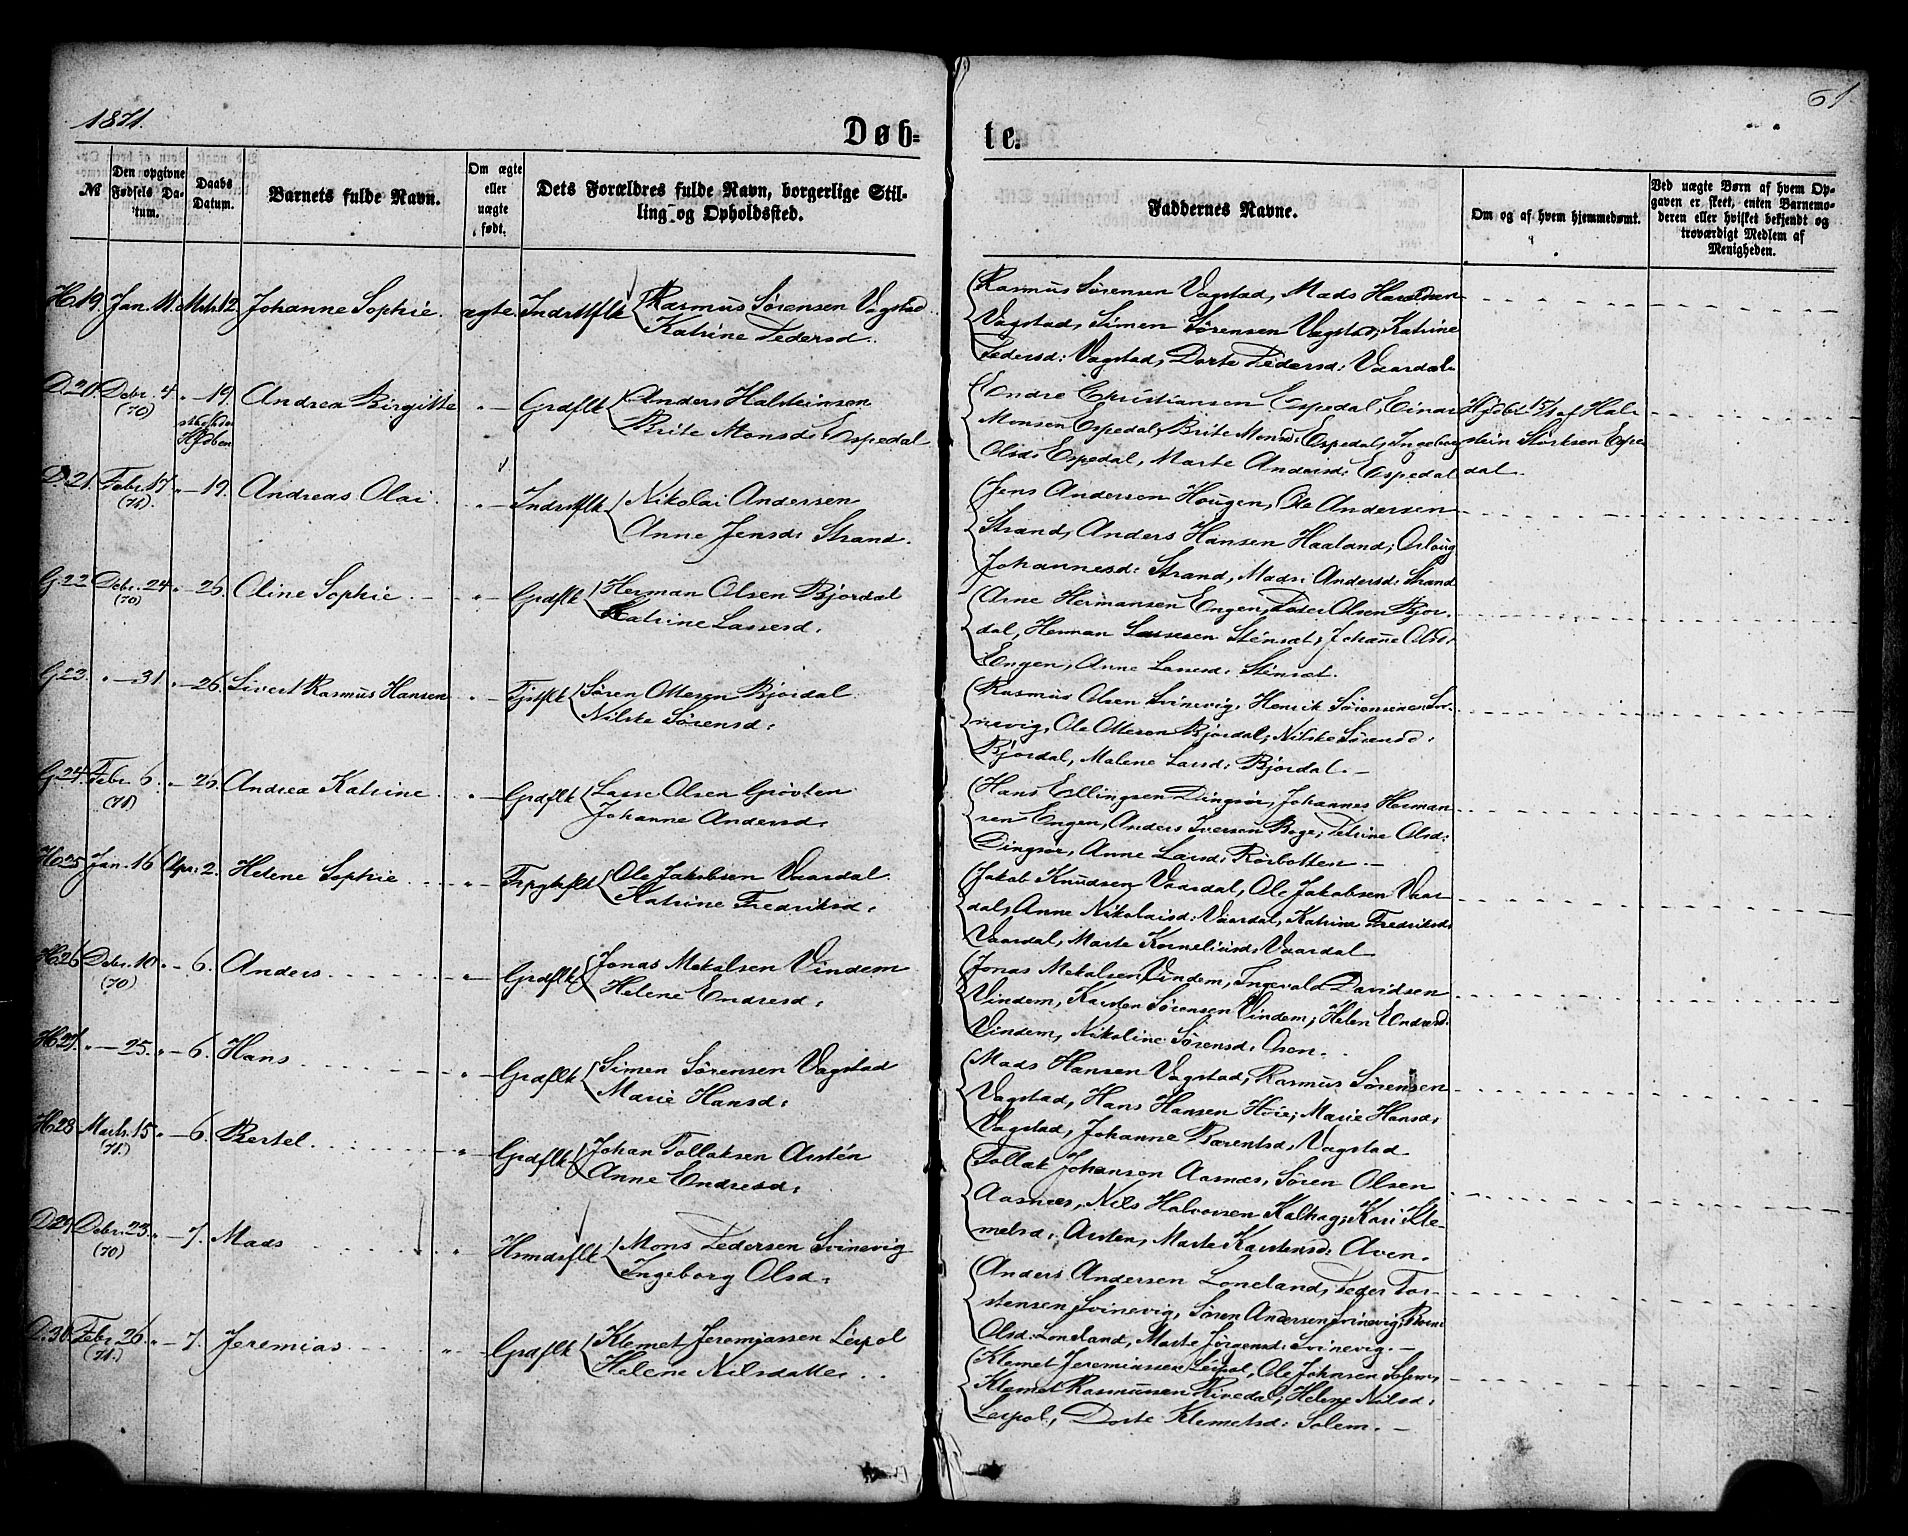 1871.
Døb-
te.
61
№
Den opgivne Fødsels Da-tum.
Daabs Datum.
Barnets fulde Navn.
Om ægte eller uægte født.
Dets Forældres fulde Navn, borgerlige Stil-
ling og Opholdssted.
Faddernes Navne.
Om og af hvem hjemmedøbt.
Ved uægte Børn af hvem Op-
gaven er skeet, enten Barnemo-
deren eller hvilket bekjendt og
troværdigt Medlem af
Menigheden.
H. 19. Jan. 11. Mrts. 12. Johanne Sophie. ægte. Indrstflk Rasmus Sørensen Vagstad
Katrine Pedersd.
Rasmus Sørensen Vagstad, Mads Haraldsen
Vagstad, Simen Sørensen Vagstad; Katrine
Pedersd: Vagstad, Dorte Pedersd: Vaardal
D. 20. Debr. 4 (70) " - 19. Andrea Birgitte " Grdflk Anders Halsteinsen
Brite Monsd: Espedal
Endre Christiansen Espedal, Einar
Monsen Espedal, Brite Monsd: Espedal, Ingeborg
Olsd: Espedal, Marte Andersd: Espedal
Hjdbt 15/1 af Hal-
stein Størksen Espe-
dal.
D. 21. Febr. 17 (71). " - 19. Andreas Olai. " Indrstflk Nikolai Andersen
Anne Jensd: Strand.
Jens Andersen Hougen, Ole Andersen
Strand, Anders Hansen Haaland; Oslaug
Johannesd: Strand, Madsi Andersd: Strand
G. 22 Debr. 24 (70) " - 26. Oline Sophie. " Grdflk Herman Olsen Bjordal
Katrine Lassesd.
Arne Hermansen Engen, Peder Olsen Bjor-
dal, Herman Lassesen Stensæt; Johanne Olsd:
Engen, Anne Larsd: Stensæt.
G. 23. " - 31. " - 26. Sivert Rasmus Hansen " Søren Ottesen Bjordal.
Nilske Sørensd:
Rasmus Olsen Svinevig, Henrik Sørensen Svi-
nevig, Ole Ottesen Bjordal; Nilske Sørensd:
Bjordal, Malene Larsd: Bjordal. -
G. 24. Febr. 6. (71) " - 26. Andrea Katrine. " Grdflk Lasse Olsen Grøvten
Johanne Andersd.
Hans Ellingsen Dingsør, Johannes Herman-
sen Engen, Anders Iversen Berge; Petrine Olsd:
Dingsør, Anne Larsd: Rørbotten. -
H. 25 Jan. 16 Apr. 2. Helene Sophie " Ole Jakobsen Vaardal.
Katrine Fredriksd.
Jakob Knudsen Vaardal, Ole Jakobsen Vaar-
dal, Anne Nikolaisd: Vaardal, Katrine Fredriksd:
Vaardal, Marte Korneliusd: Vaardal
H. 26 Debr. 10. (70) " - 6. Anders " Grdflk Jonas Mekalsen Vindem
Helene Endresd.
Jonas Mekalsen Vindem, Ingevald Davidsen
Vindem, Karsten Sørensen Vindem; Helen Endresd:
Vindem, Nikoline Sørensd: Osen.
H. 27. " - 25. " - 6. Hans " Grdflk Simen Sørensen Vagstad
Marie Hansd:
Mads Hansen Vagstad, Rasmus Sørensen
Vagstad, Hans Hansen Høie; Marie Hansd:
Vagstad, Johanne Bærentsd: Vagstad
H. 28 Marts. 15 (71.) " - 6. Bertel. " Grdflk Johan Tollaksen Arsten
Anne Endresd.
Tollak Johansen Aasnæs, Søren Olsen
Aasnæs, Nils Halvorsen Kalhag; Kari Kle-
metsd: Arsten, Marte Karstensd: Aven.
D. 29. Debr. 23. (70) " - 7. Mads " Hsmdsflk Mons Pedersen Svinevig
Ingeborg Olsd.
Anders Andersen Loneland, Peder Tor-
stensen Svinevig, Søren Andersen Svinevig,
Olsd: Loneland, Marte Jørgensd: Svinevig. -
D. 30. Febr. 26. (71.) " - 7. Jeremias " Grdflk Klemet Jeremiassen Leirpol
Helene Nilsdatter.
Klemet Jeremiassen Leirpol, Ole Johnsen Solem,
Klemet Rasmussen Rivedal; Helene Nilsd:
Leirpol, Dorte Klemetsd: Solem. -